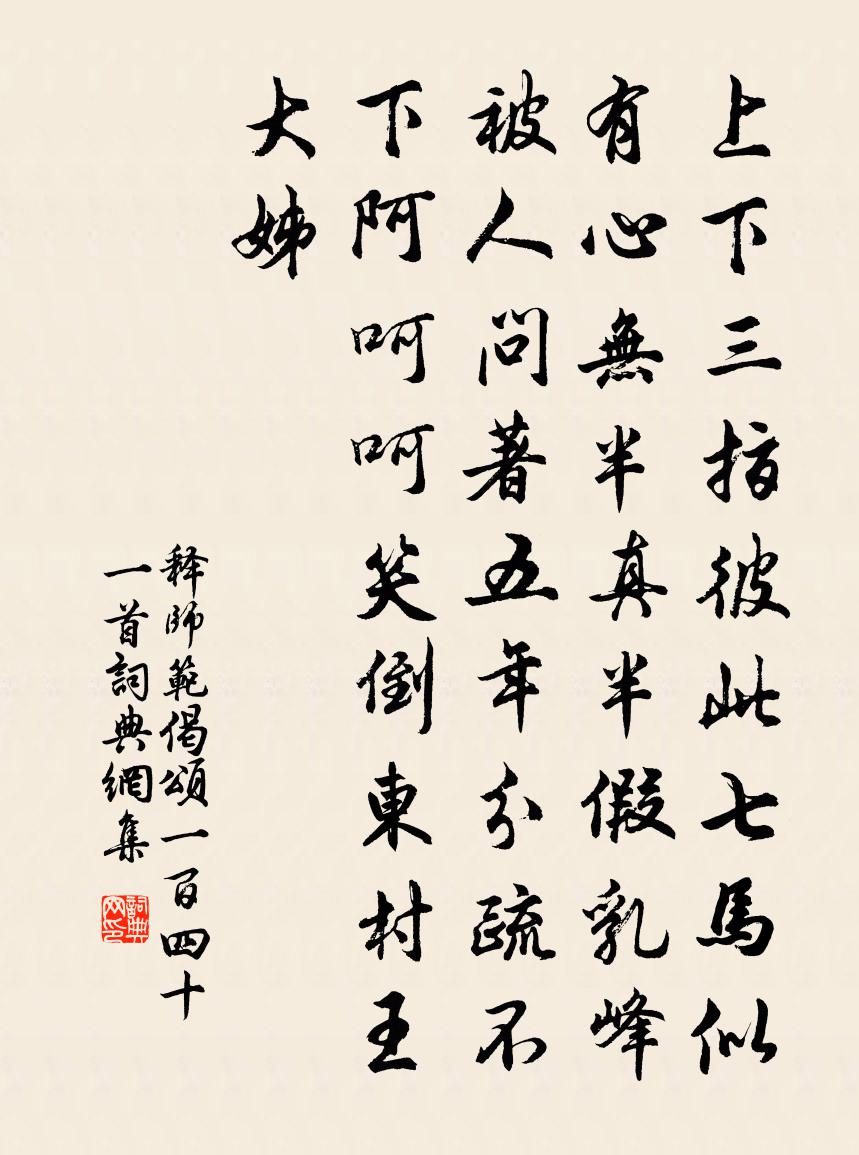 上下三指彼此七馬似
有心無半真半假乳峰
被人問著五年分疏不
下阿呵呵笑倒東村王
大姊
释師範偈頌一百四十
一首詞典網集
詞典
网印